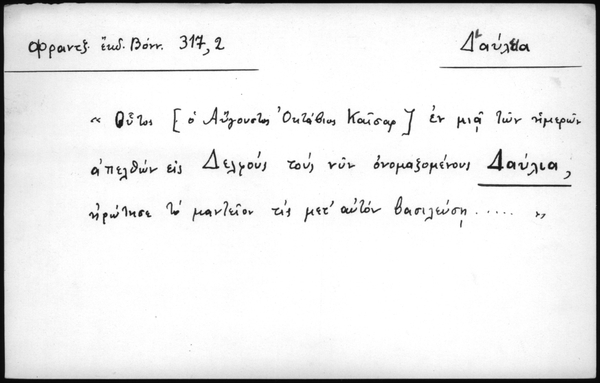 Φραντζ. ἔκδ. Βόνν. 317,2
Δαύλια
« Οὗτος [ὁ Αὔγουστος Ὀκτάβιος Καῖσαρ] ἐν μιᾷ τῶν ἡμερῶν
ἀπελθὼν εἰς Δελφούς τούς νῦν ὀνομαζομένους Δαύλια,
ἠρώτησε τὸ μαντεῖον τίς μετ' αὐτόν βασιλεύσῃ ..... »